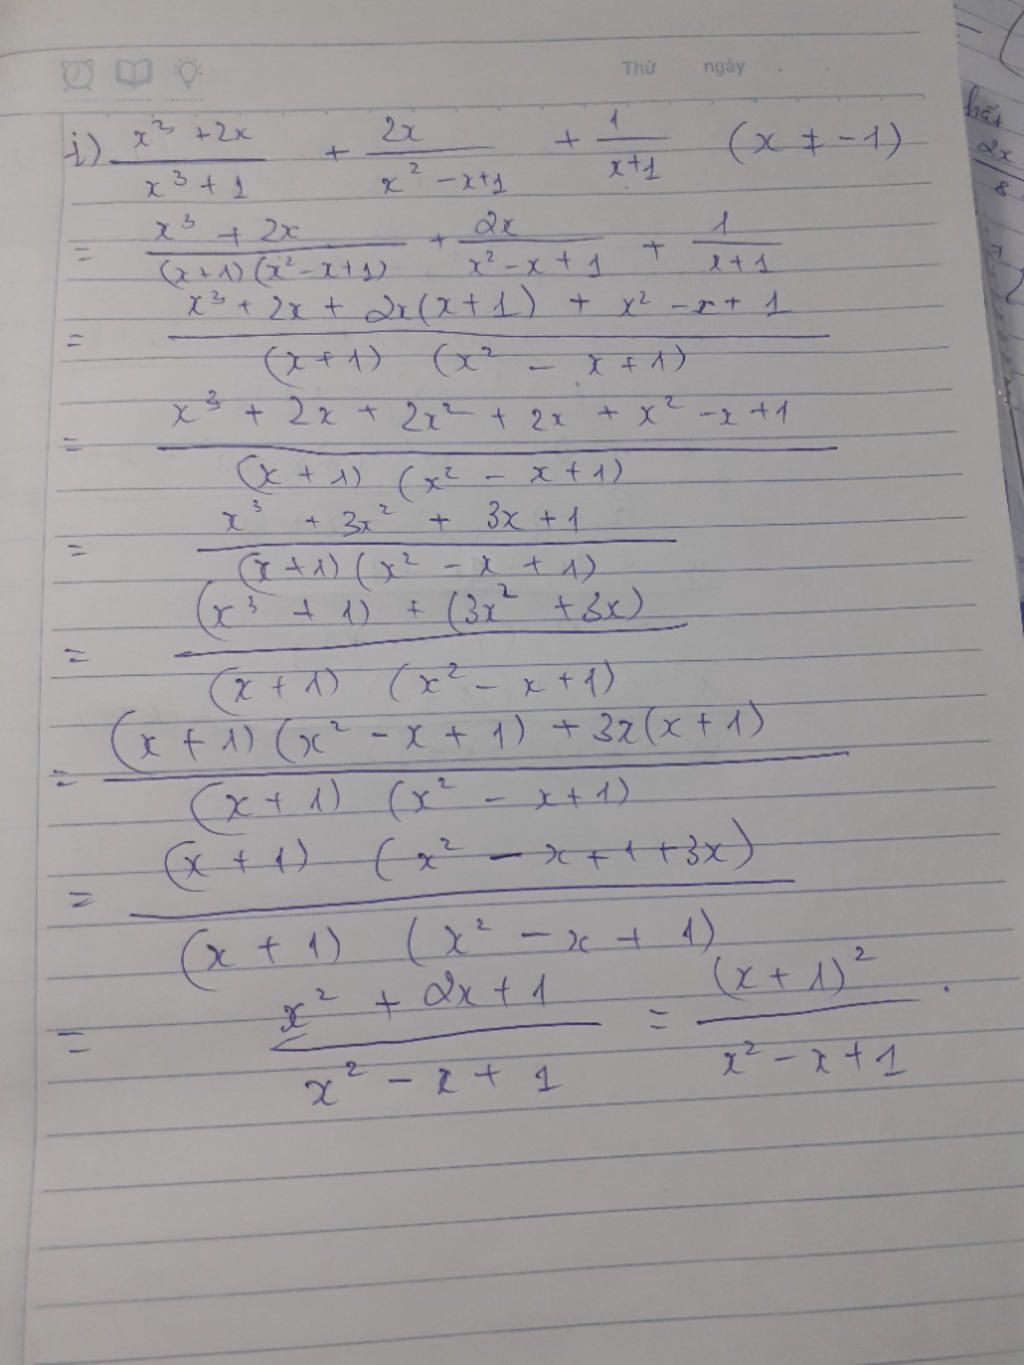 Thứ ngày . .
i) (x³ + 2x)/(x³ + 1) + 2x/(x² - x+1) + 1/(x+1) (x ≠ -1)
= (x³ + 2x)/((x+1)(x² - x+1)) + 2x/(x² - x + 1) + 1/(x+1)
= (x³ + 2x + 2x(x+1) + x² - x + 1)/((x+1) (x² - x+1))
= (x³ + 2x + 2x² + 2x + x² - x +1)/((x+1) (x² - x+1))
= (x³ + 3x² + 3x + 1)/((x+1)(x² - x + 1))
= ((x³ + 1) + (3x² + 3x))/((x+1) (x² - x+1))
= ((x+1)(x² - x + 1) + 3x(x+1))/((x+1) (x² - x+1))
= ((x+1) (x² - x+1+3x))/((x+1) (x² - x + 1))
= (x² + 2x+1)/(x² - x + 1) = (x+1)²/(x² - x+1) .